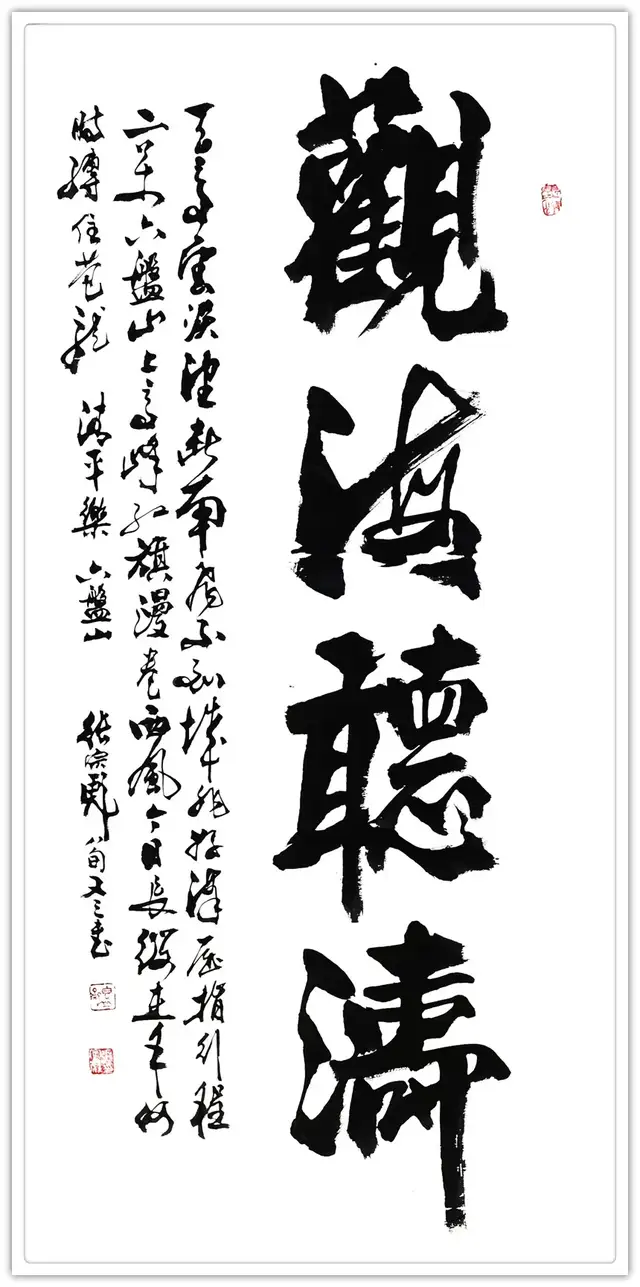 觀海聽濤
天高雲淡望断南飛雁不到長城非好漢屈指行程
二万六盤山上高峰红旗漫卷西風今日長纓在手何
時縛住蒼龍 清平樂 六盤山 張宗彪八旬又三書